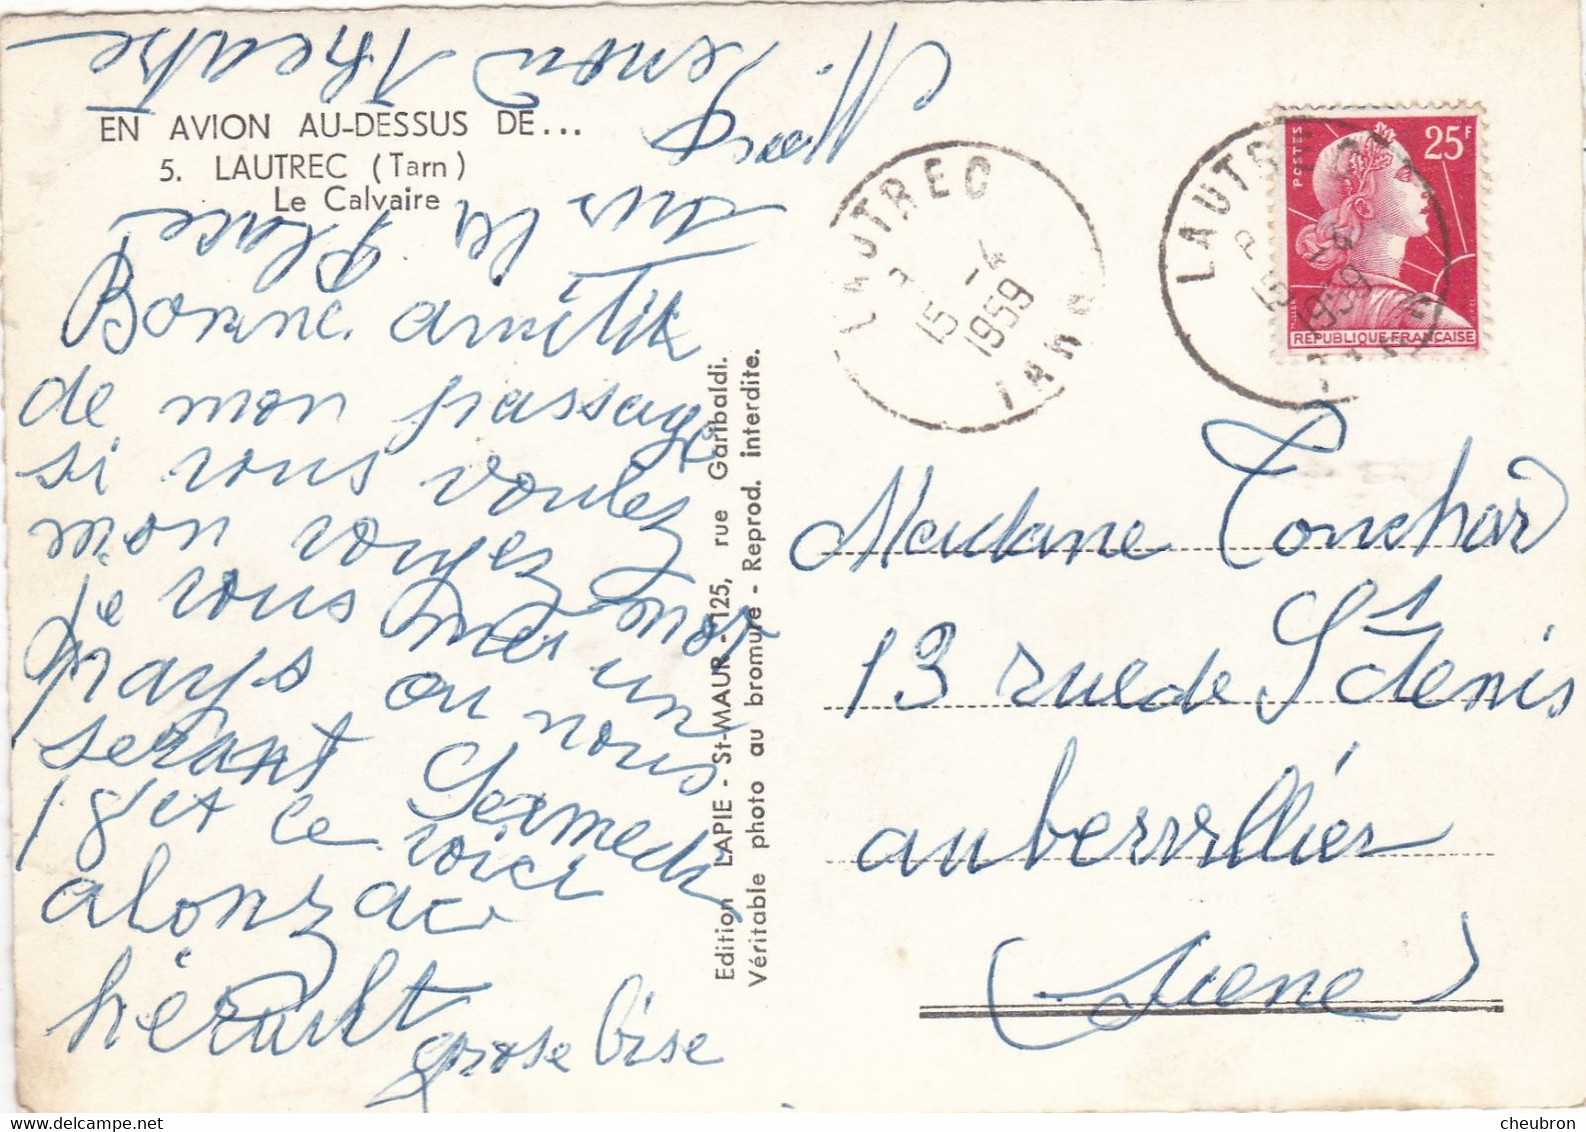 EN AVION AU-DESSUS DE...
5. LAUTREC (Tarn)
Le Calvaire
Bonne amitié
de mon passage
si vous voulez
mon voyez
je vous mes mot
pays ou un
serant nous
18 et le Samedi
voici
alonzac
hérault
grose bise
sur la Place
Theatre
Edition LAPIE - St-MAUR - 125, rue Garibaldi.
Véritable photo au bromure - Reprod. interdite.
LAUTREC
15 -4
1959
TARN
LAUTREC
15 -4
1959
POSTES
25F
REPUBLIQUE FRANÇAISE
Madame Tonchard
13 rue de St denis
aubervillier
(Siene)
cheubron